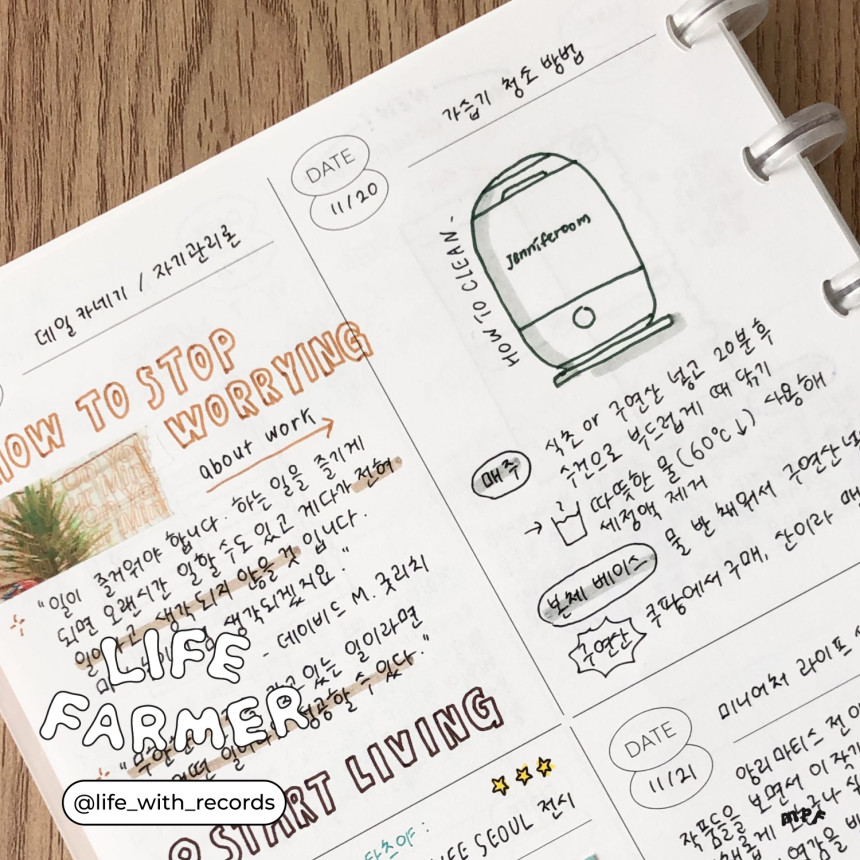 데일 카네기 / 자기관리론
HOW TO STOP
WORRYING
about work
"일이 즐거워야 합니다. 하는 일을 즐기게
되면 오랜시간 일할 수도 있고 게다가 전혀
일이라고 생각되지 않을 것 입니다.
생각되겠지요."
- 데이비드 M. 굿리치
있는 일이라면
성공할 수 있다."
& START LIVING
DATE
11/20
가습기 청소 방법
HOW TO CLEAN -
Jenniferoom
매주
식초 or 구연산 넣고 20분 후
수건으로 부드럽게 때 닦기
→ 따뜻한 물 (60℃↓) 사용해
세정액 제거
본체 베이스
물 반 채워서 구연산
구연산
쿠팡에서 구매, 산이라
DATE
11/21
미니어처 라이프
앙리마티스 전
작품들을 보면서 이 작가
LIFE SEOUL 전시
LIFE
FARMER
@life_with_records